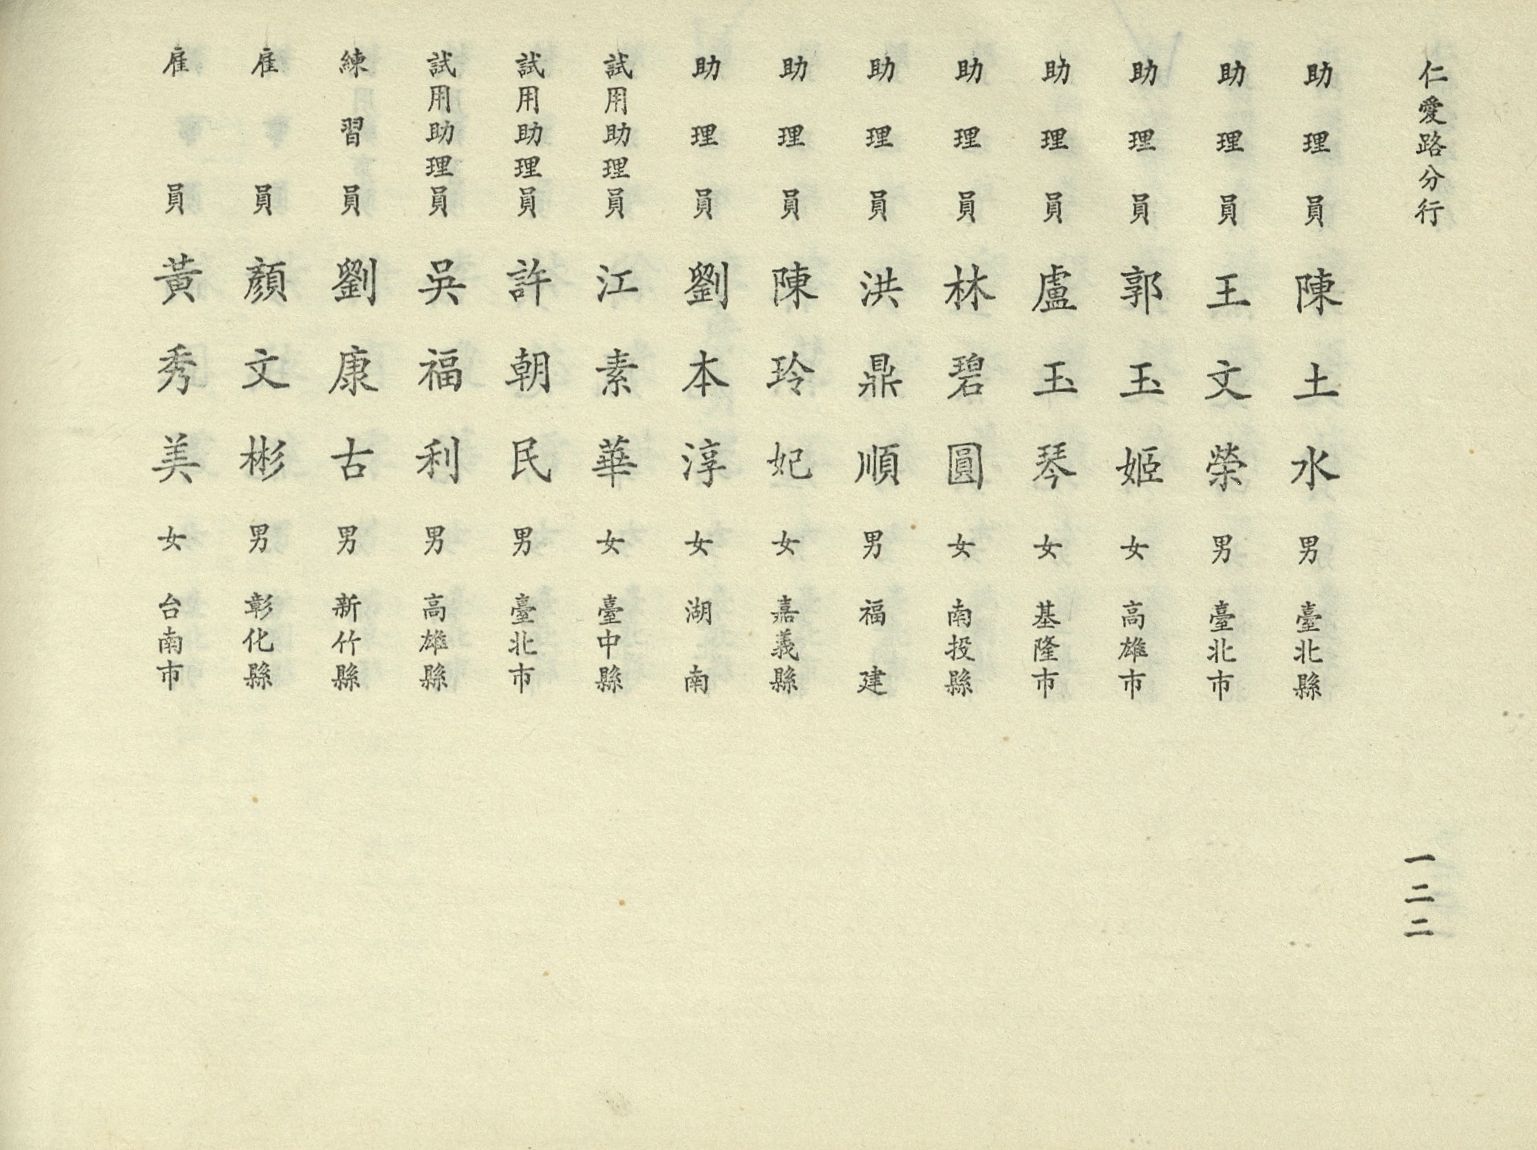 仁愛路分行
一二二
助理員 陳土水 男 臺北縣
助理員 王文榮 男 臺北市
助理員 郭玉姬 女 高雄市
助理員 盧玉琴 女 基隆市
助理員 林碧圓 女 南投縣
助理員 洪鼎順 男 福建
助理員 陳玲妃 女 嘉義縣
助理員 劉本淳 女 湖南
試用助理員 江素華 女 臺中縣
試用助理員 許朝民 男 臺北市
試用助理員 吳福利 男 高雄縣
練習員 劉康古 男 新竹縣
雇員 顏文彬 男 彰化縣
雇員 黃秀美 女 台南市